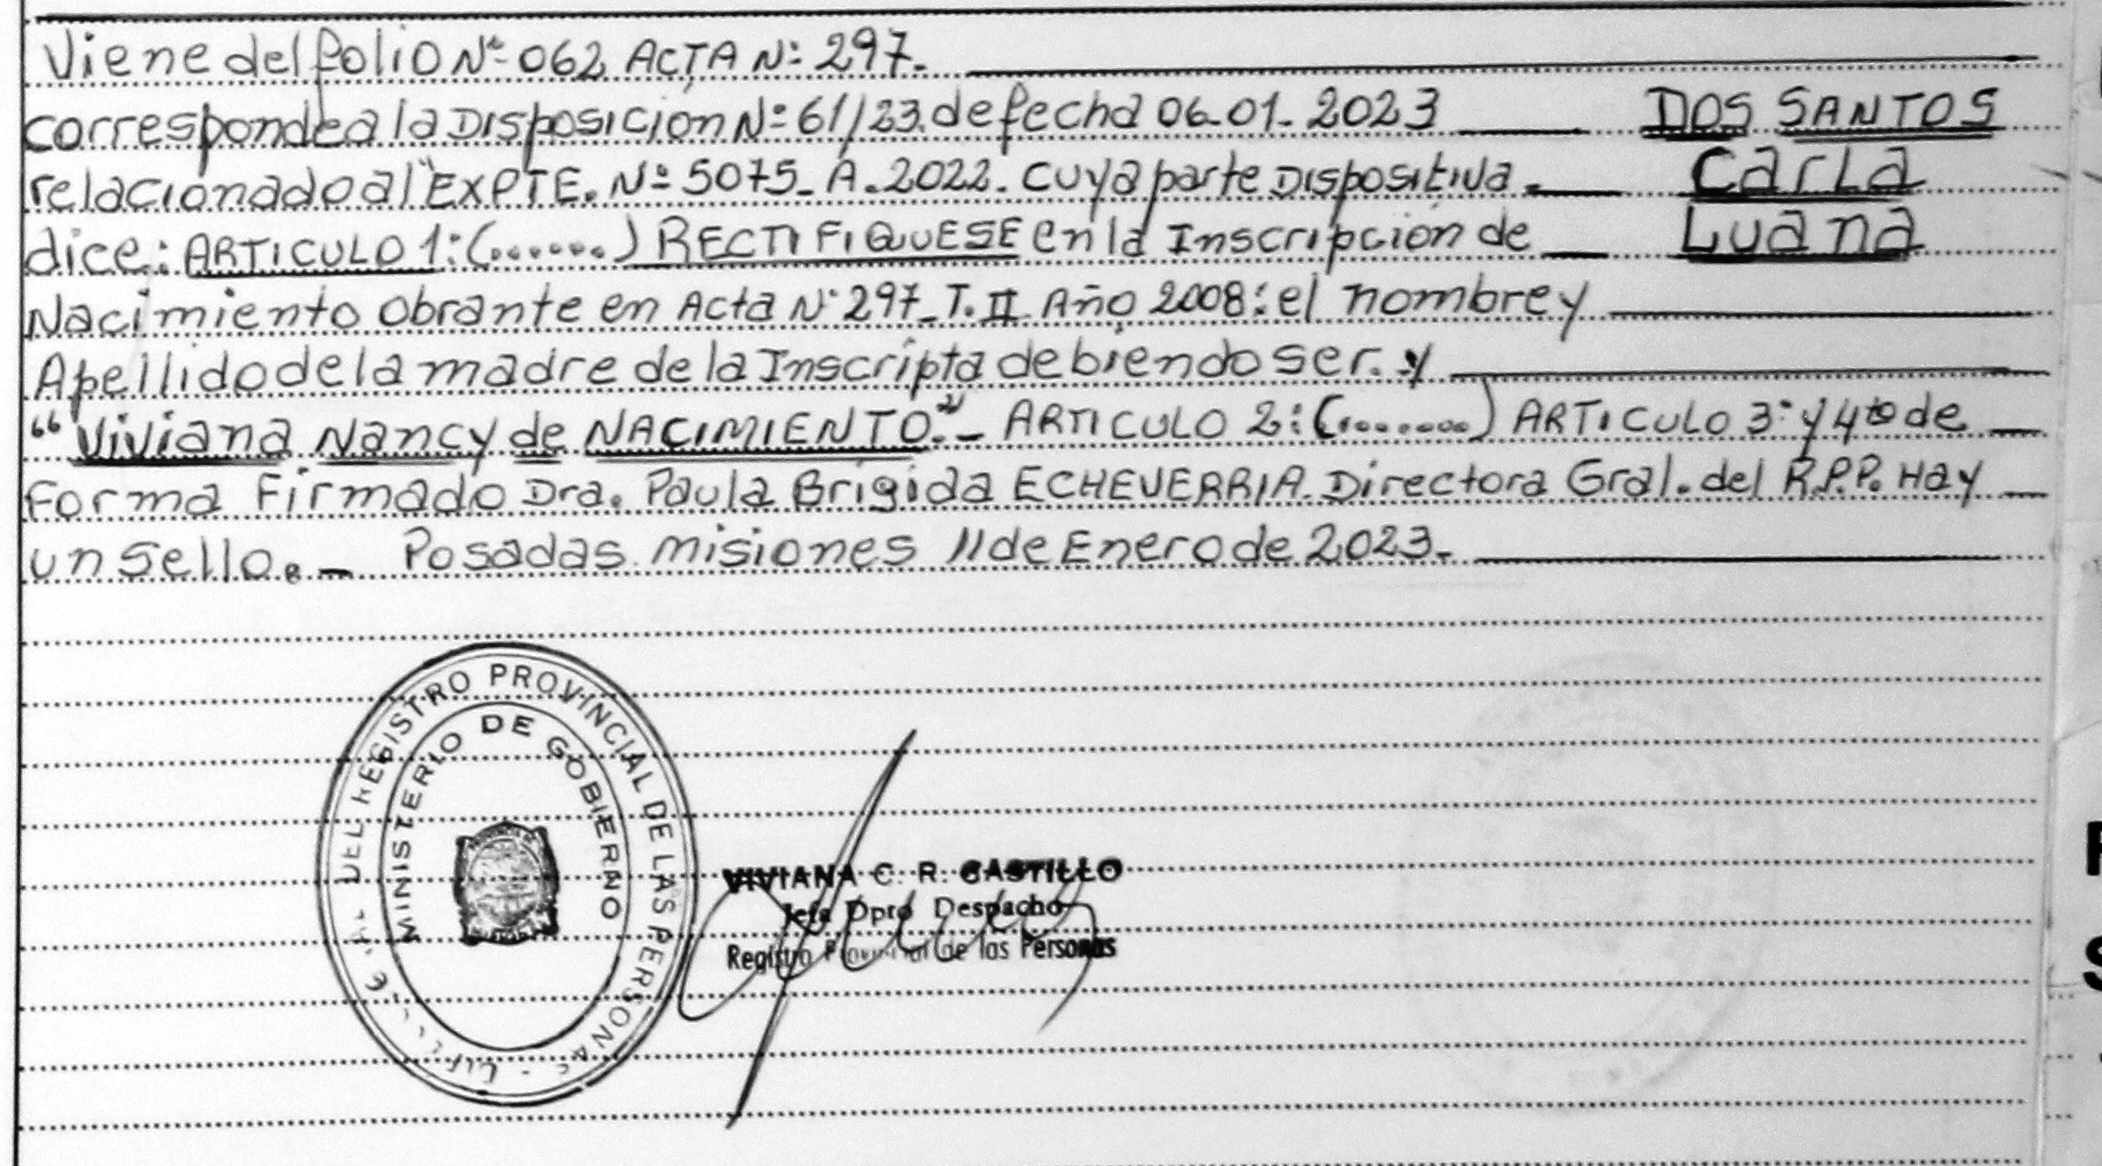 Viene del folio Nº 062 ACTA Nº 297.
corresponde a la DISPOSICIÓN Nº 61//23. de fecha 06-01-2023
relacionado al "EXPTE. Nº 5075_A.2022. cuya parte DISPOSITIVA
dice: ARTICULO 1: (......) RECTIFIQUESE en la Inscripción de
Nacimiento obrante en Acta Nº 297_T. II Año 2008: el nombre y
Apellido de la madre de la Inscripta debiendo ser. y
"Viviana Nancy de NACIMIENTO". ARTICULO 2: (.......) ARTICULO 3º y 4to de
Forma Firmado Dra. Paula Brigida ECHEVERRIA. Directora Gral. del R.P.P. Hay
un sello. Posadas misiones 11 de Enero de 2023.
DOS SANTOS
Carla
Luana
DEL REGISTRO PROVINCIAL DE LAS PERSONAS
MINISTERIO DE GOBIERNO
VIVIANA C. R. CASTILLO
Jefa Dpto Despacho
Registro Provincial de las Personas